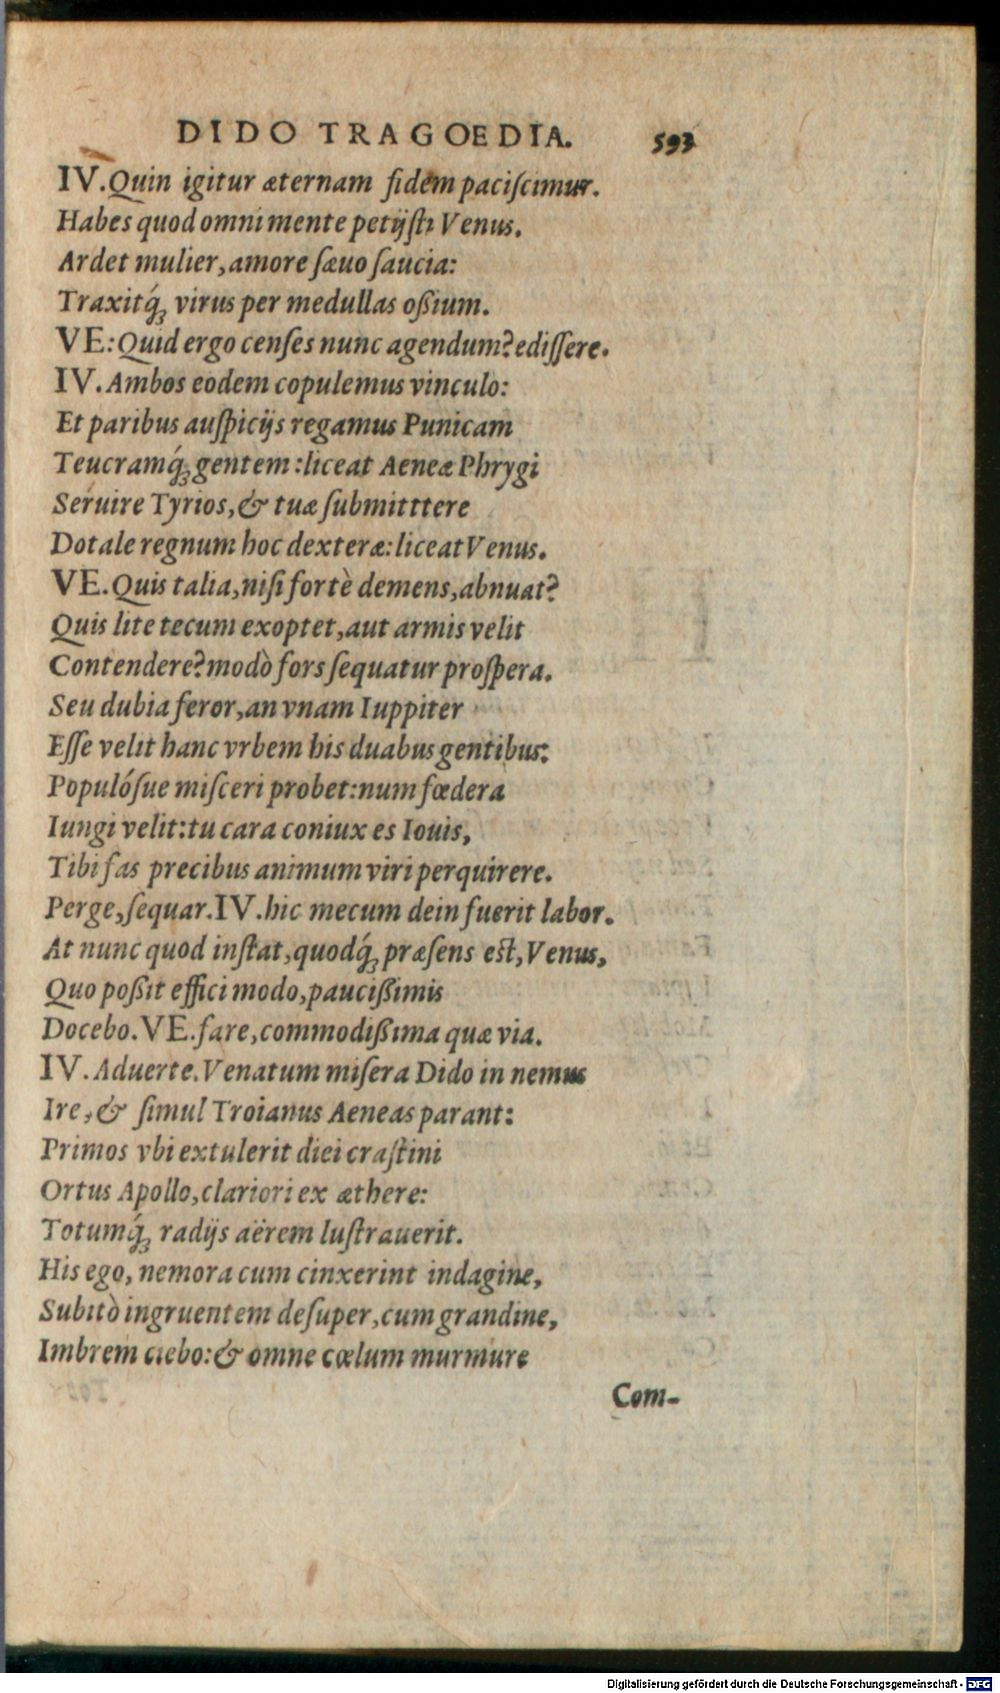 DIDO TRAGOEDIA. 593
IV. Quin igitur æternam fidem paciſcimur.
Habes quod omni mente petijſti Venus.
Ardet mulier, amore ſæuo ſaucia:
Traxitq́ꝫ virus per medullas oßium.
VE: Quid ergo cenſes nunc agendum? ediſſere.
IV. Ambos eodem copulemus vinculo:
Et paribus auſpicijs regamus Punicam
Teucramq́ꝫ gentem: liceat Aeneæ Phrygi
Seruire Tyrios, & tuæ ſubmitttere
Dotale regnum hoc dexteræ: liceat Venus.
VE. Quis talia, niſi fortè demens, abnuat?
Quis lite tecum exoptet, aut armis velit
Contendere? modò fors ſequatur proſpera.
Seu dubia feror, an vnam Iuppiter
Eſſe velit hanc vrbem his duabus gentibus:
Populóſue miſceri probet: num fœdera
Iungi velit: tu cara coniux es Iouis,
Tibi fas precibus animum viri perquirere.
Perge, ſequar. IV. hic mecum dein fuerit labor.
At nunc quod inſtat, quodq́ꝫ præſens eſt, Venus,
Quo poßit effici modo, paucißimis
Docebo. VE. fare, commodißima quæ via.
IV. Aduerte. Venatum miſera Dido in nemus
Ire, & ſimul Troianus Aeneas parant:
Primos vbi extulerit diei craſtini
Ortus Apollo, clariori ex æthere:
Totumq́ꝫ radijs aërem luſtrauerit.
His ego, nemora cum cinxerint indagine,
Subitò ingruentem deſuper, cum grandine,
Imbrem ciebo: & omne cœlum murmure
Com-
Digitalisierung gefördert durch die Deutsche Forschungsgemeinschaft - DFG